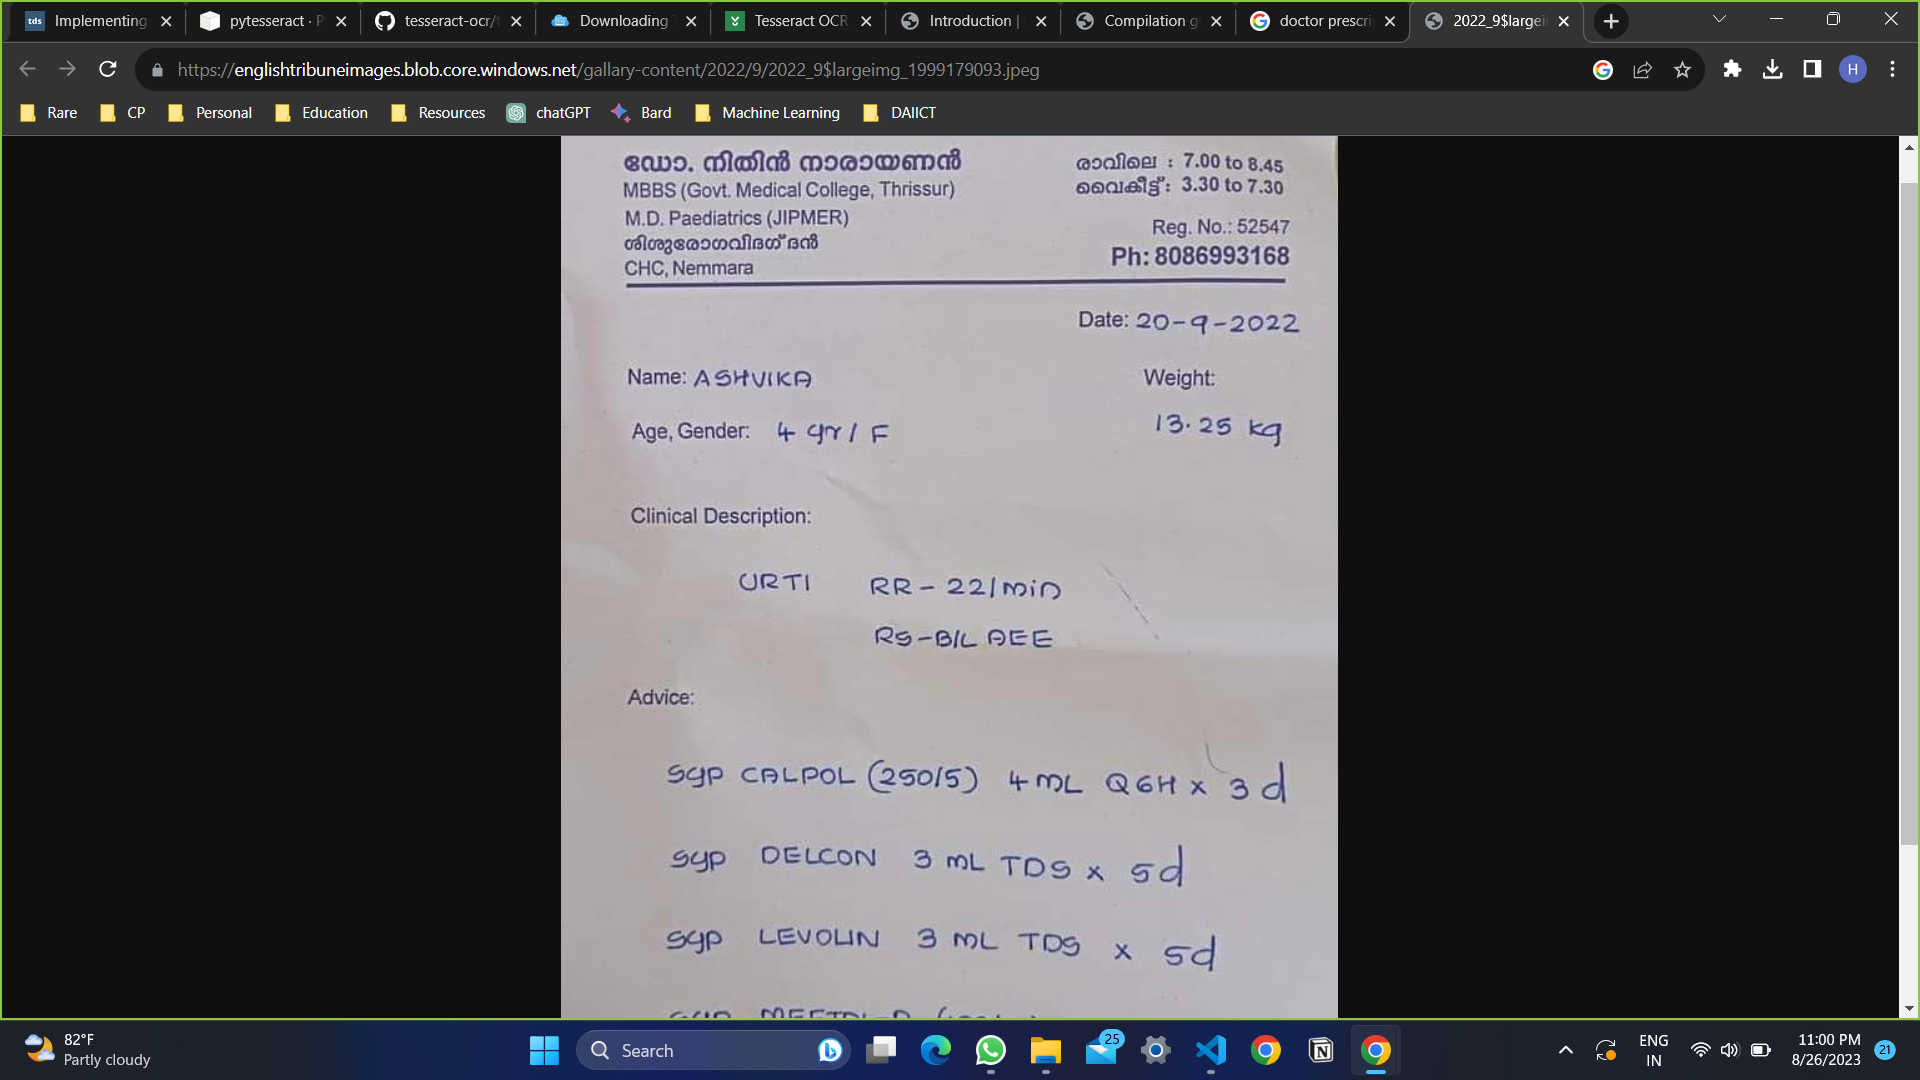 Implementing
pytesseract · P
tesseract-ocr/t
Downloading
Tesseract OCR
Introduction |
Compilation g
doctor prescri
2022_9$largei
https://englishtribuneimages.blob.core.windows.net/gallary-content/2022/9/2022_9$largeimg_1999179093.jpeg
H
Rare CP Personal Education Resources chatGPT Bard Machine Learning DAIICT
ഡോ. നിതിൻ നാരായണൻ
രാവിലെ : 7.00 to 8.45
MBBS (Govt. Medical College, Thrissur)
വൈകീട്ട് : 3.30 to 7.30
M.D. Paediatrics (JIPMER)
Reg. No.: 52547
ശിശുരോഗവിദഗ്ദൻ
Ph: 8086993168
CHC, Nemmara
Date: 20-9-2022
Name: ASHVIKA
Weight:
Age, Gender: 4 yr / F
13.25 kg
Clinical Description:
URTI RR - 22/min
RS - B/L AEE
Advice:
syp CALPOL (250/5) 4 mL Q6H x 3 d
syp DELCON 3 mL TDS x 5d
syp LEVOLIN 3 mL TDS x 5d
82°F
Partly cloudy
Search
25
ENG
IN
11:00 PM
8/26/2023
21